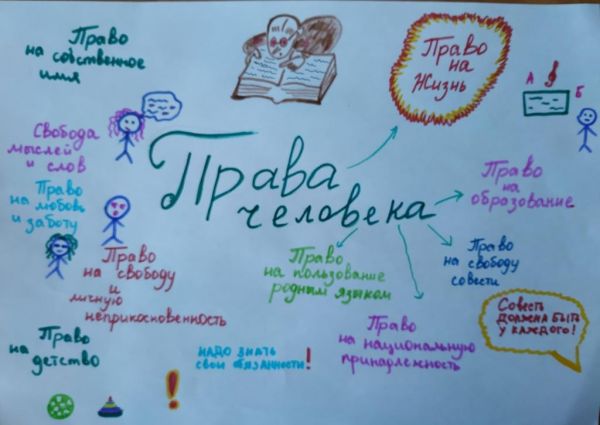 Право
на собственное
имя
Право
на
Жизнь
А
Б
Свобода
мыслей
и слов
Права
человека
Право
на
образование
Право
на любовь
и заботу
Право
на свободу
и
личную
неприкосновенность
Право
на пользование
родным языком
Право
на свободу
совести
Совесть
должна быть
у каждого!
Право
на национальную
принадлежность
Право
на
детство
!
НАДО ЗНАТЬ
свои обязанности!